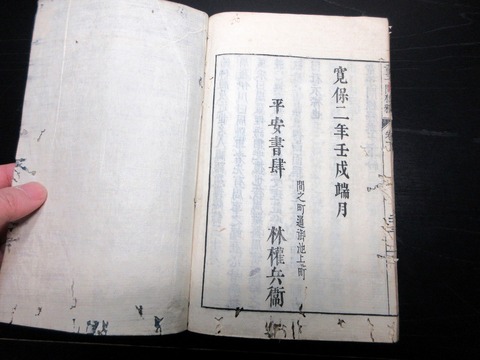 寛保二年壬戌端月
間之町通御池上町
平安書肆 林權兵衞